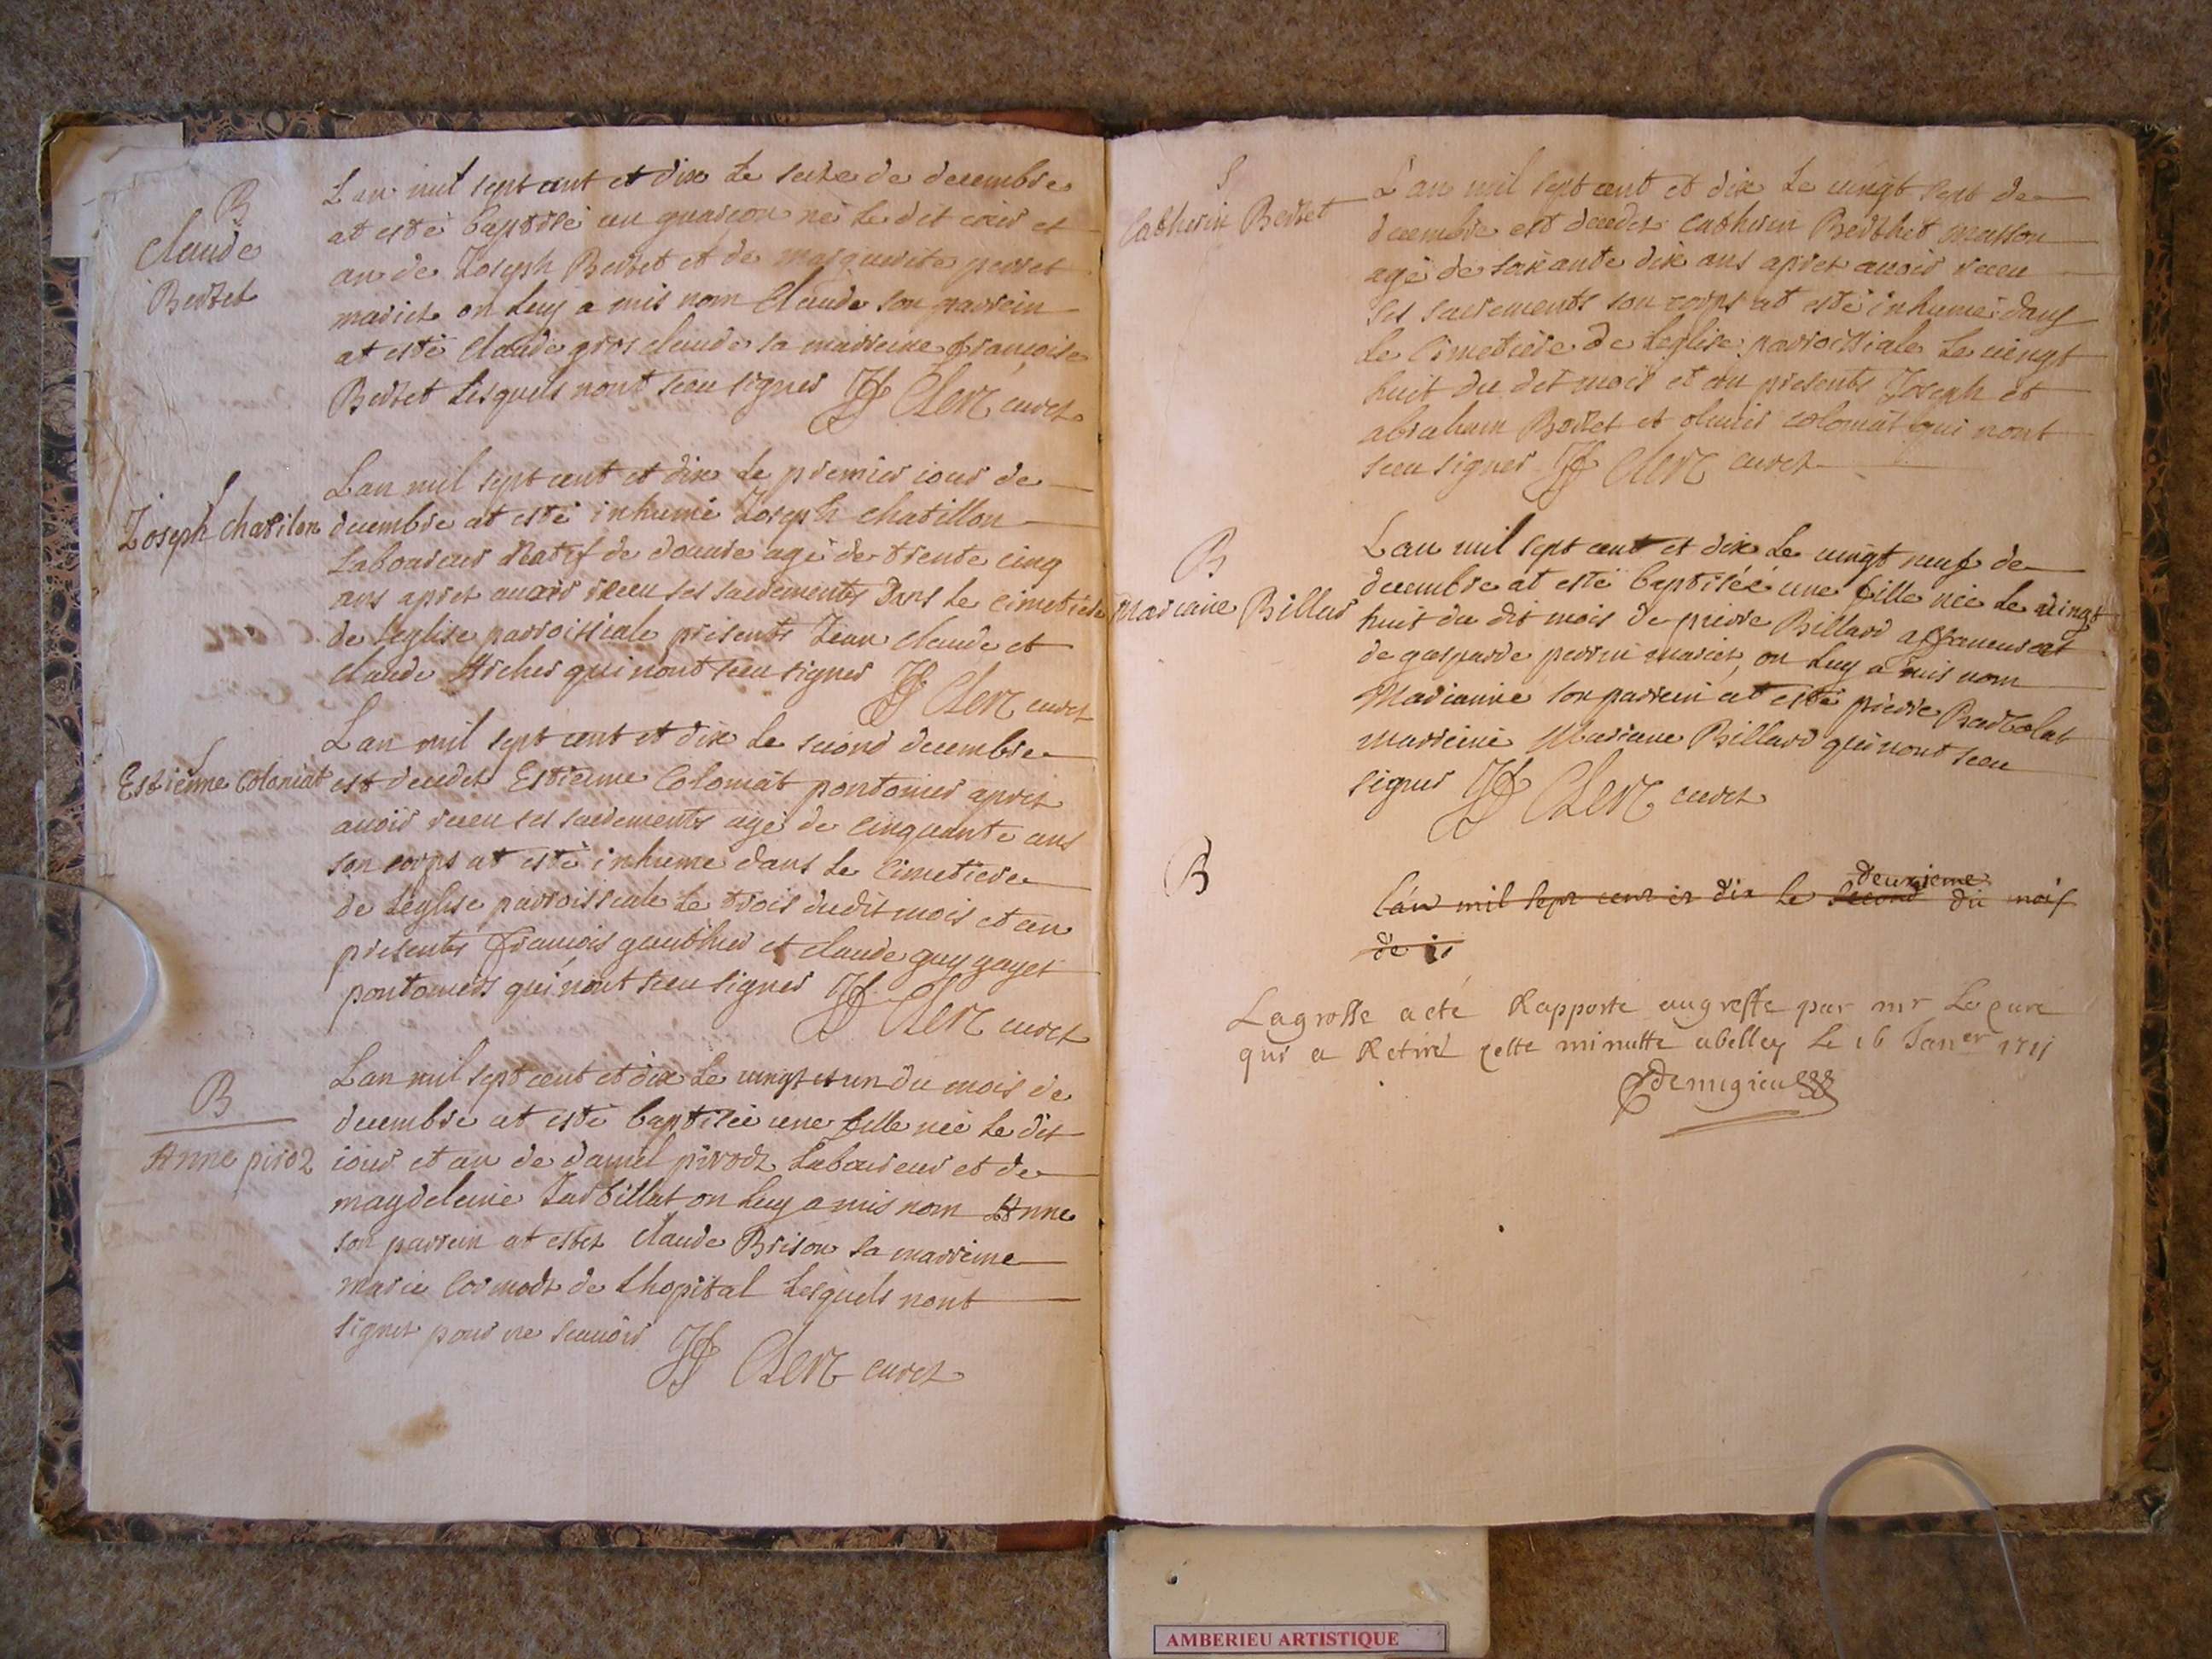 B
Claude
Bertet
Lan mil sept cent et dix Le seize de decembre
at esté baptisé un guarcon né Le dit iour et
an de Joseph Bertet et de marguerite perret
mariez on Luy a mis nom Claude son parrein
at esté Claude gros claude sa marreine françoise
Bertet Lesquels nont sceu signer JF Clerc curez
S
Joseph Chatilon
Lan mil sept cent et dix Le premier iour de
decembre at esté inhumé Joseph chatillon
Laboureur Natif de douure agé de trente cinq
ans aprez auoir receu ses sacrements Dans Le Cimetiere
de Leglise parroissiale présents Jean claude et
claude Archer qui nont sceu signer JF Clerc curez
S
Estienne Coloniat
Lan mil sept cent et dix Le second decembre
est decedez Estienne Coloniat pontonier aprez
auoir receu ses sacrements agé de cinquante ans
son corps at esté inhumé dans Le Cimetiere
de Leglise parroissiale Le trois dudit mois et an
presents françois gauthier et claude guy gayet
pontoniers qui nont sceu signer JF Clerc curez
B
Anne piroz
Lan mil sept cent et dix Le uingt et un du mois de
decembre at esté baptisée une fille née Le dit
iour et an de daniel pirodz Laboureur et de
magdeleine Jarbillat on Luy a mis nom Anne
son parrein at estez claude Brison sa marreine
marie Cormodz de Lhopital Lesquels nont
signez pour ne scauoir JF Clerc curez
S
Catherin Bertet
L'an mil sept cent et dix Le uingt sept de
decembre est decedez Catherin Berthet masson
agé de soixante dix ans aprez auoir receu
ses sacrements son corps at esté inhumé dans
Le Cimetiere de Leglise parroissiale Le uingt
huit du dit mois et an presents Joseph et
abraham Bertet et oliuier coloniat qui nont
sceu signer JF Clerc curez
B
Marianne Billar
Lan mil sept cent et dix Le uingt neuf de
decembre at esté baptisée une fille née Le uingt
huit du dit mois de pierre Billard affaneur et
de gasparde perrin mariez, on Luy a mis nom
Marianne son parrein at esté pierre Bartolat
marreine Mariane Billard qui nont sceu
signer JF Clerc curez
B
deuxieme
L'an mil sept cent et dix le second du mois
de
Lagrosse a été Rapporté augreffe par mr Le cure
qui a Retiré cette minutte abelley Le 16 Janer 1711
demigieu
AMBERIEU ARTISTIQUE